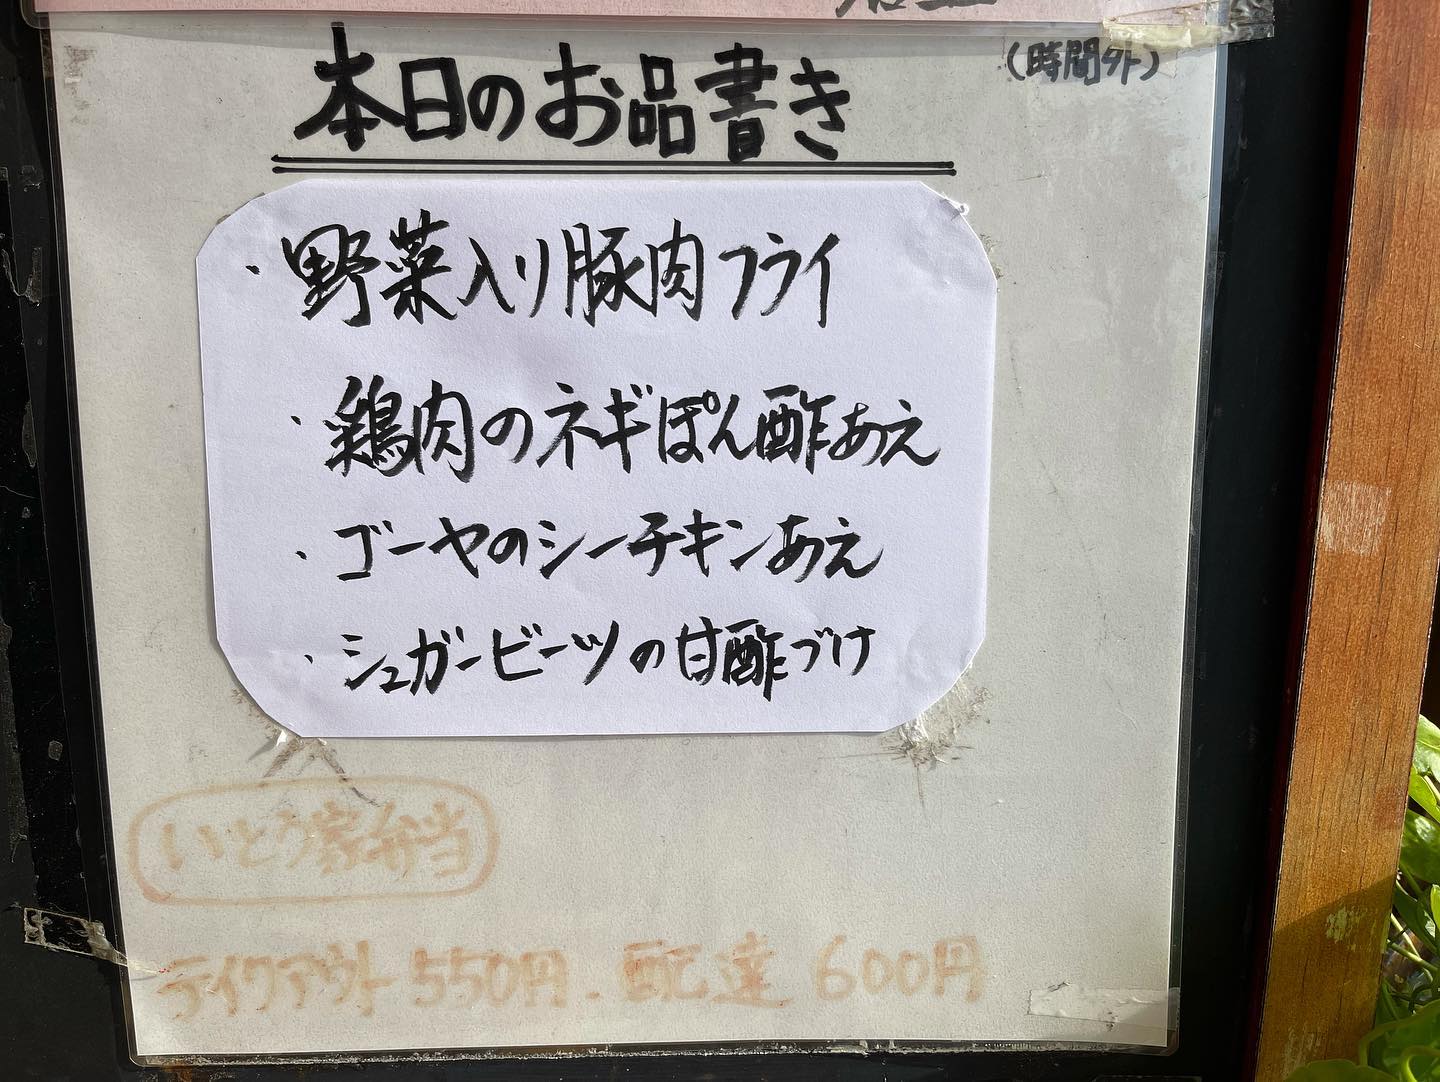 本日のお品書き
(時間外)
・野菜入り豚肉フライ
・鶏肉のネギぽん酢あえ
・ゴーヤのシーチキンあえ
・シュガービーツの甘酢づけ
いとう家弁当
テイクアウト 550円. 配達 600円